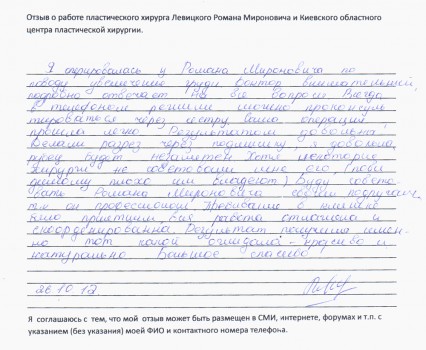 Отзыв о работе пластического хирурга Левицкого Романа Мироновича и Киевского областного
центра пластической хирургии.
Я оперировалась у Романа Мироновича по
поводу увеличение груди. Доктор внимательный,
подробно отвечает на все вопросы. Всегда
в телефоном режими можно проконсуль
тироваться через сестру. Сама операция
прошла легко. Результатом довольна!
Делали разрез через подмышку, я довольна,
рубец будет незаметен. Хотя некоторые
хирурги не советовали мне его, (види
димому плохо им владеют). Буду совето
вать Романа Мироновича своим подругам,
т.к. он профессионал. Пребывание в клинике
было приятним, вся работа отлажена и
скоординированна. Результат получила имен
но тот какой ожидала - красиво и
натурально. Большое спасибо!
26.10.12
Я соглашаюсь с тем, что мой отзыв может быть размещен в СМИ, интернете, форумах и т.п. с
указанием (без указания) моей ФИО и контактного номера телефона.